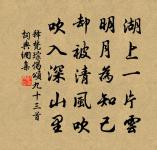 湖上一片雲
明月為知己
却被清風吹
吹入深山里
釋梵琮偈頌九十三首
詞典網集